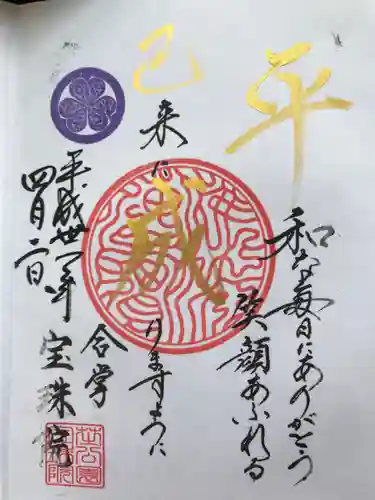 平和な毎日にありがとう
笑顔あふれる
巳来に成りますように
合掌
平成卅一年
四月二日
宝珠院